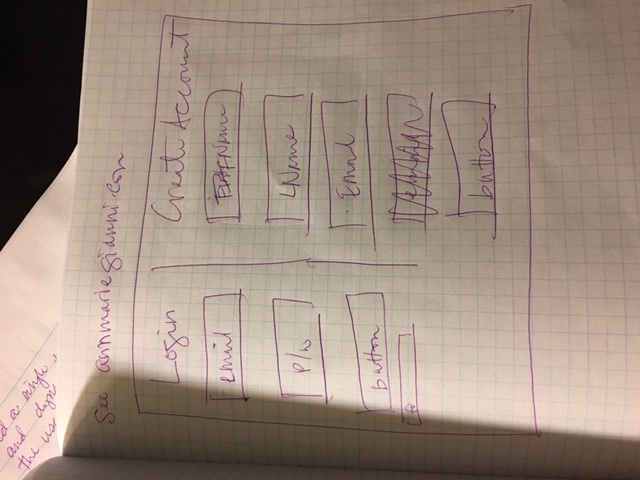 and dyn
the us
See annmariegianni.com
Login
email
P/w
button
Create Account
FName
LName
Email
button